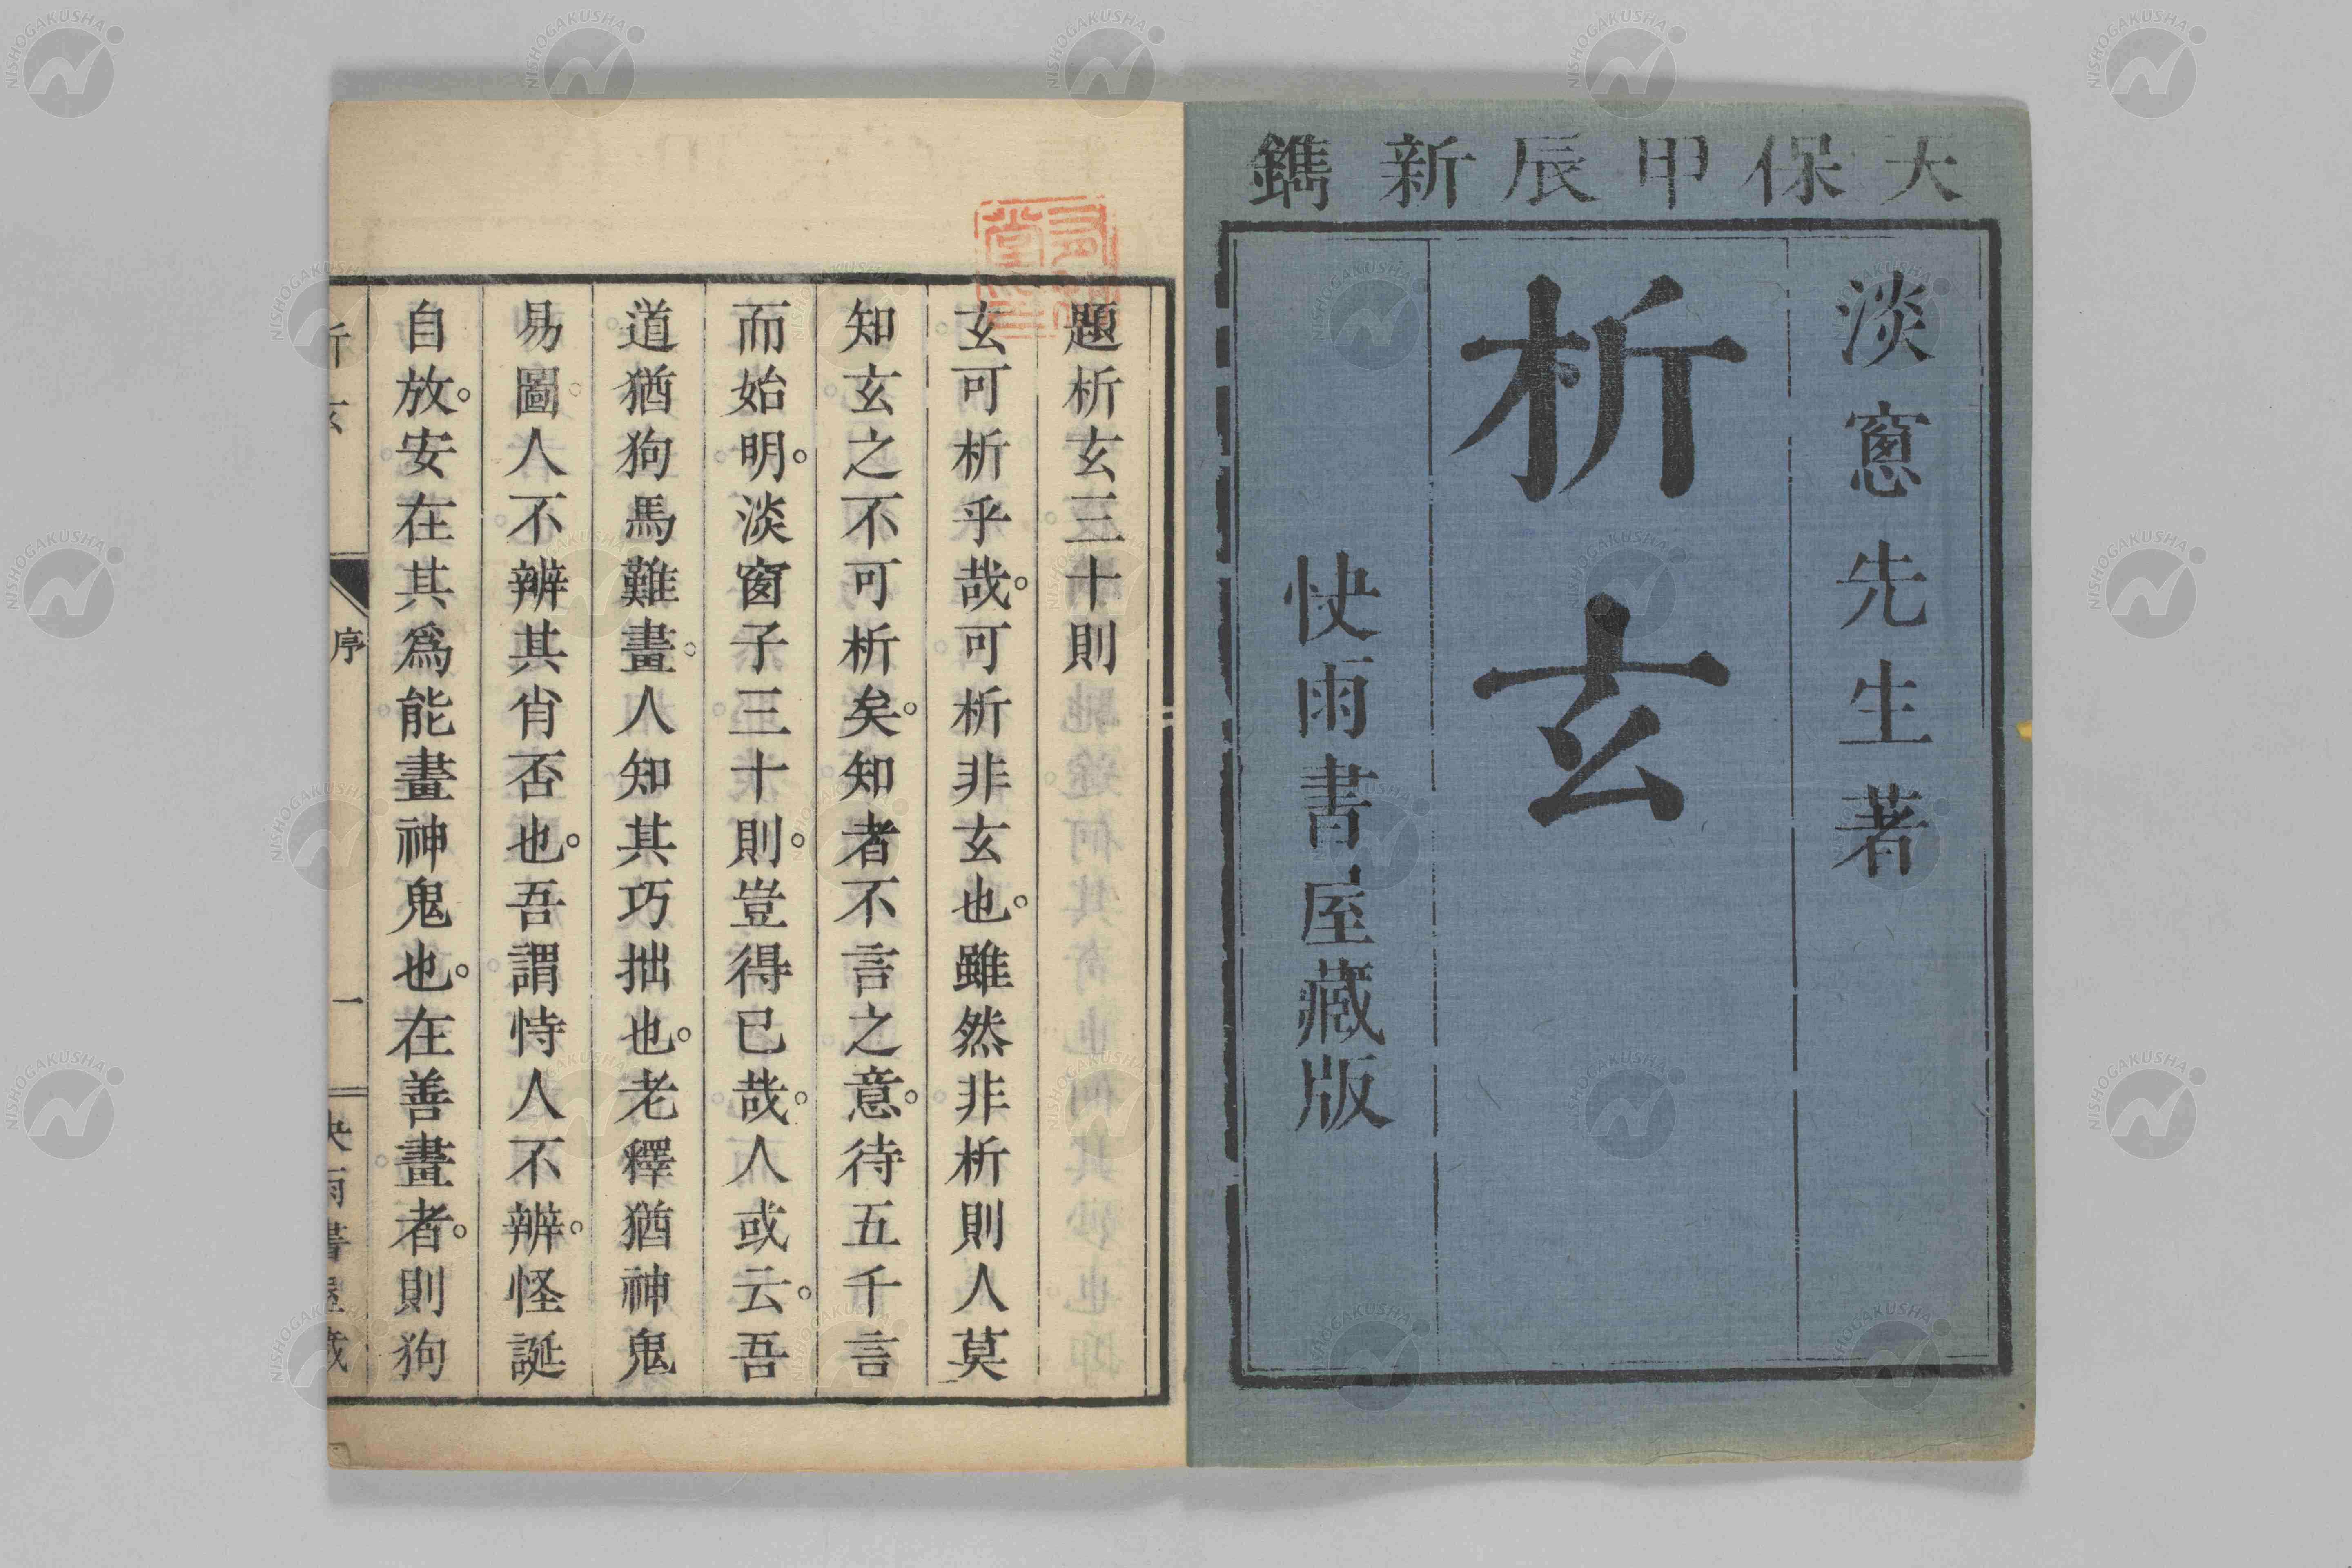 天保甲辰新鐫
淡窻先生著
析玄
快雨書屋藏版
題析玄三十則
玄可析乎哉。可析非玄也。雖然非析則人莫
知玄之不可析矣。知者不言之意。待五千言
而始明。淡窗子三十則。豈得已哉。人或云。吾
道猶狗馬難畫。人知其巧拙也。老釋猶神鬼
易圖。人不辨其肖否也。吾謂恃人不辨。怪誕
自放。安在其爲能畫神鬼也。在善畫者。則狗
析玄
序
一
快雨書屋藏
NISHOGAKUSHA